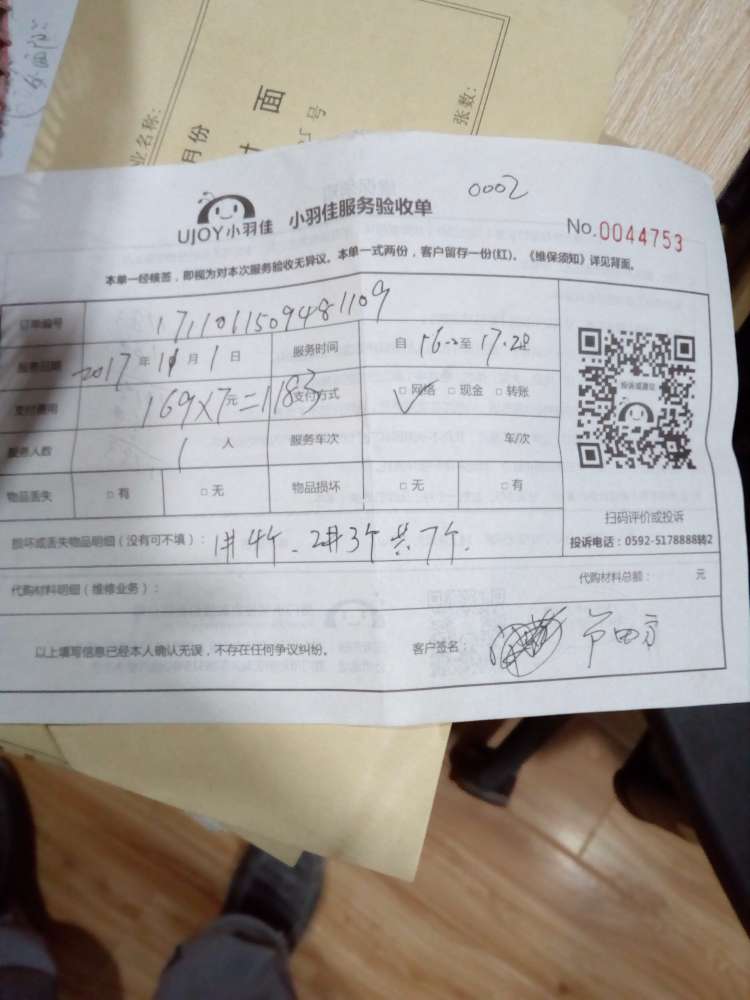 业名称：
月份
计 面
号
张数：
0002
UJOY小羽佳 小羽佳服务验收单 No.0044753
本单一经核签，即视为对本次服务验收无异议。本单一式两份，客户留存一份(红)。《维保须知》详见背面。
订单编号 1711011509481109
服务日期 2017年11月1日 服务时间 自 16:00至 17:28
支付费用 169×7元=1183 支付方式 ✓□网络 □现金 □转账
服务人数 1 人 服务车次 车/次
物品丢失 □有 □无 物品损坏 □无 □有
投诉或建议
扫码评价或投诉
损坏或丢失物品明细（没有可不填）： 1井4个、2井3个 共7个. 投诉电话：0592-5178888转2
代购材料明细（维修业务）： 代购材料总额： 元
以上填写信息已经本人确认无误，不存在任何争议纠纷。 客户签名：